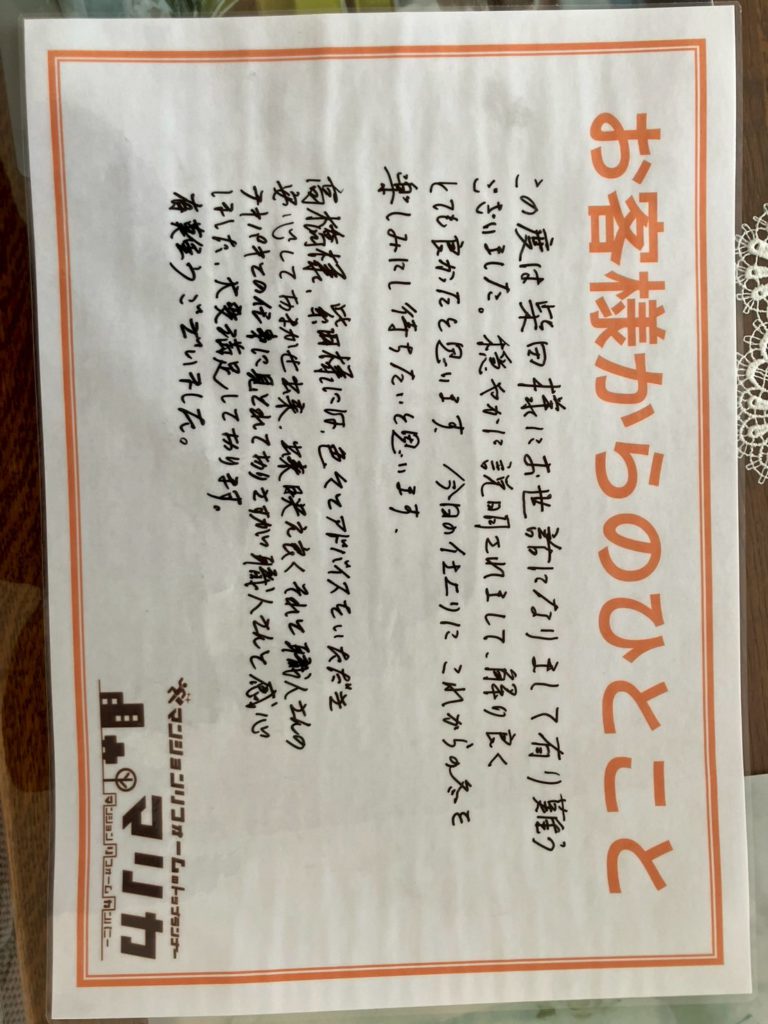 お客様からのひとこと
この度は柴田様にお世話になりまして有り難う
ございました。穏やかに説明されまして、解り良く
とても良かったと思います、今日の仕上りに これからの冬を
楽しみにし待ちたいと思います、
高橋様、柴田様には、色々とアドバイスをいただき
安心しておまかせ出来、出来映え良くそれと職人さんの
テキパキとの仕事に見とれており さすが職人さんと感心
しました、大変満足しております。
有難うございました。
マンションリフォームのトップランナー
マリカ
マンションリフォームカンパニー